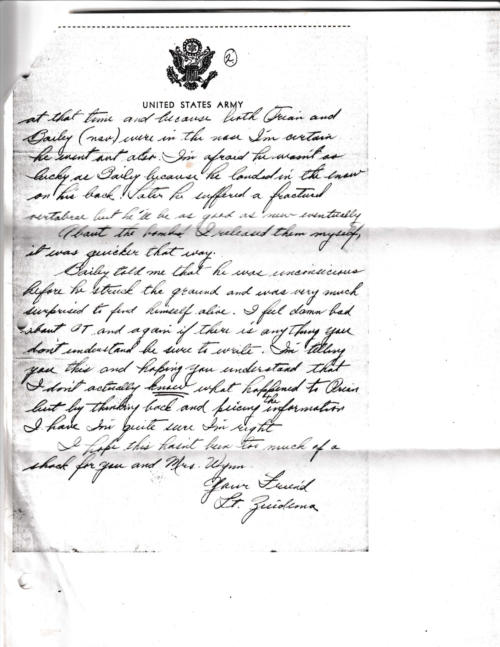 2
UNITED STATES ARMY
at that time and because both Orian and
Bailey (nav) were in the nose I'm certain
he went out also. I'm afraid he wasn't as
lucky as Bailey because he landed in the snow
on his back. Later he suffered a fractured
vertabrae but he'll be as good as new eventually
About the bombs I released them myself,
it was quicker that way.
Bailey told me that he was unconscious
before he struck the ground and was very much
surprised to find himself alive. I feel damn bad
about OT. and again if there is anything you
don't understand be sure to write. I'm telling
you this and hoping you understand that
I don't actually know what happened to Orian
but by thinking back and piecing the information
I have I'm quite sure I'm right
I hope this hasn't been too much of a
shock for you and Mrs. Wynn.
Your Friend
Lt. Zuidema